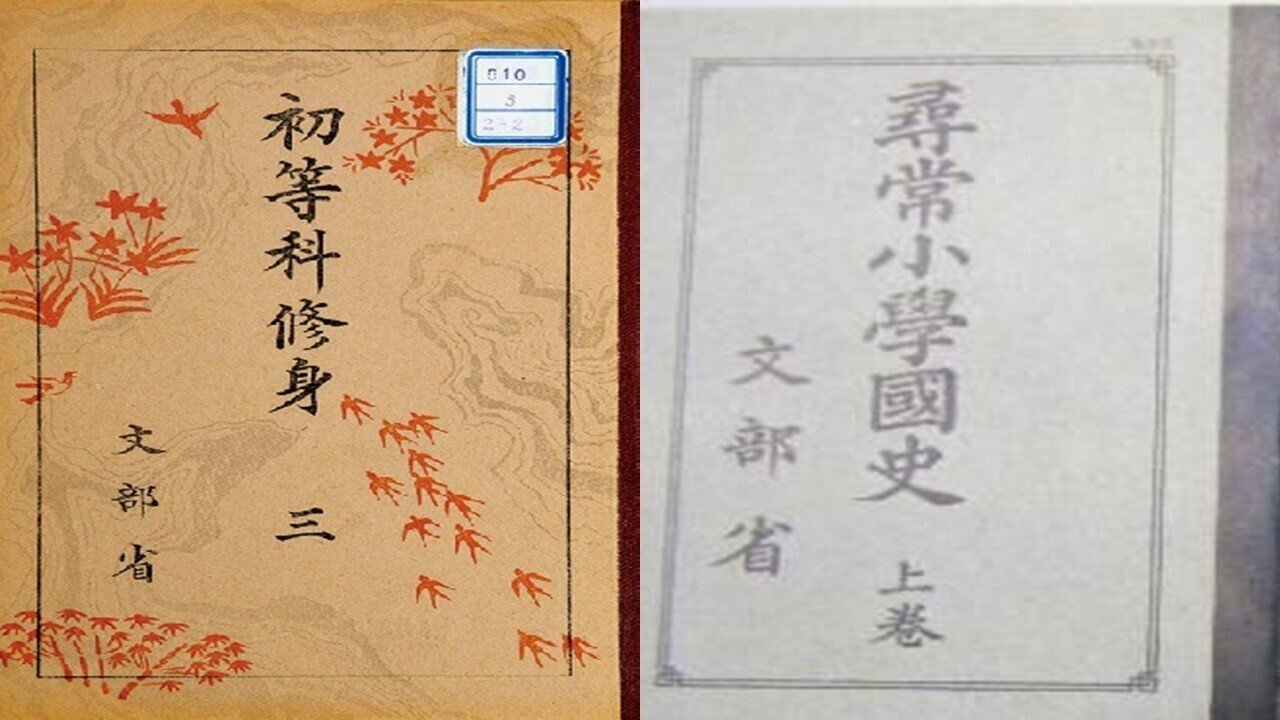 初等科修身 三
文部省
810
3
2-2
尋常小學國史 上卷
文部省